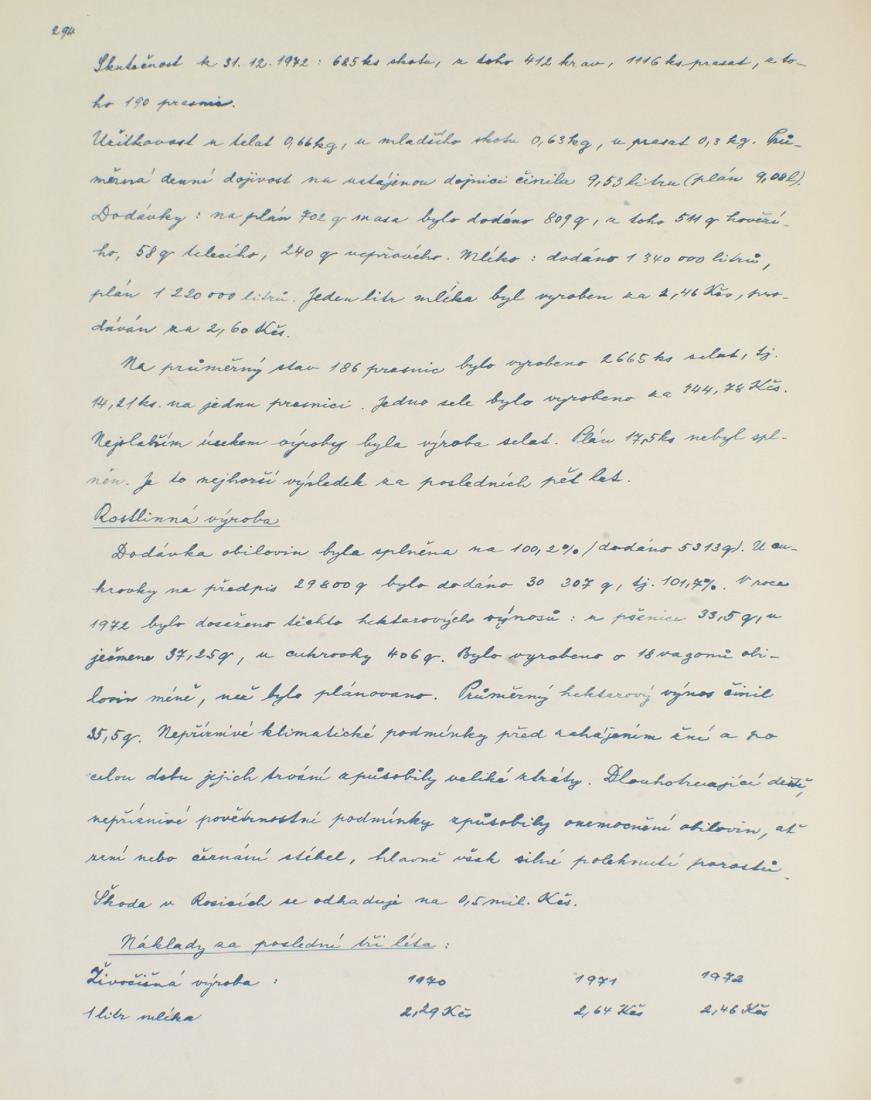 294
Skutečnost k 31. 12. 1972 : 685 ks skotu, z toho 412 krav, 1116 ks prasat, z to-
ho 190 prasnic.
Užitkovost u telat 0,66 kg, u mladšího skotu 0,63 kg, u prasat 0,3 kg. Prů-
měrná denní dojivost na ustájenou dojnici činila 9,53 litru (plán 9,08 l).
Dodávky : na plán 702 q masa bylo dodáno 809 q, z toho 511 q hovězí-
ho, 58 q telecího, 240 q vepřového. Mléko : dodáno 1 340 000 litrů,
plán 1 220 000 litrů. Jeden litr mléka byl vyroben za 2,46 Kčs, pro-
dáván za 2,60 Kčs.
Na průměrný stav 186 prasnic bylo vyrobeno 2665 ks selat, tj.
14,21 ks. na jednu prasnici. Jedno sele bylo vyrobeno za 344,78 Kčs.
Nejslabším úsekem výroby byla výroba selat. Plán 17,5 ks nebyl spl-
něn. Je to nejhorší výsledek za posledních pět let.
Rostlinná výroba
Dodávka obilovin byla splněna na 100,2% /dodáno 5313 q). U cu-
krovky na předpis 29800 q bylo dodáno 30 307 q, tj. 101,7%. V roce
1972 bylo dosaženo těchto hektarových výnosů : u pšenice 33,5 q, u
ječmene 37,25 q, u cukrovky 406 q. Bylo vyrobeno o 18 vagonů obi-
lovin méně, než bylo plánováno. Průměrný hektarový výnos činil
35,5 q. Nepříznivé klimatické podmínky před zahájením žní a po
celou dobu jejich trvání způsobily veliké ztráty. Dlouhotrvající deště,
nepříznivé povětrnostní podmínky způsobily onemocnění obilovin, ať
rzní nebo černání stébel, hlavně však silné polehnutí porostů.
Škoda v Rosicích se odhaduje na 0,5 mil. Kčs.
Náklady za poslední tři léta :
Živočišná výroba : 1970 1971 1972
1 litr mléka 2,29 Kčs 2,64 Kčs 2,46 Kčs